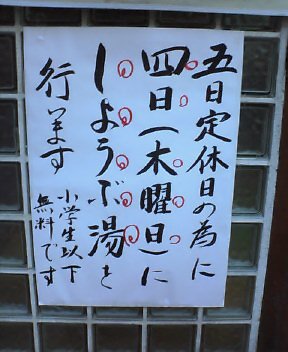 五日定休日の為に
四日(木曜日)に
しようぶ湯を
行います
小学生以下
無料です